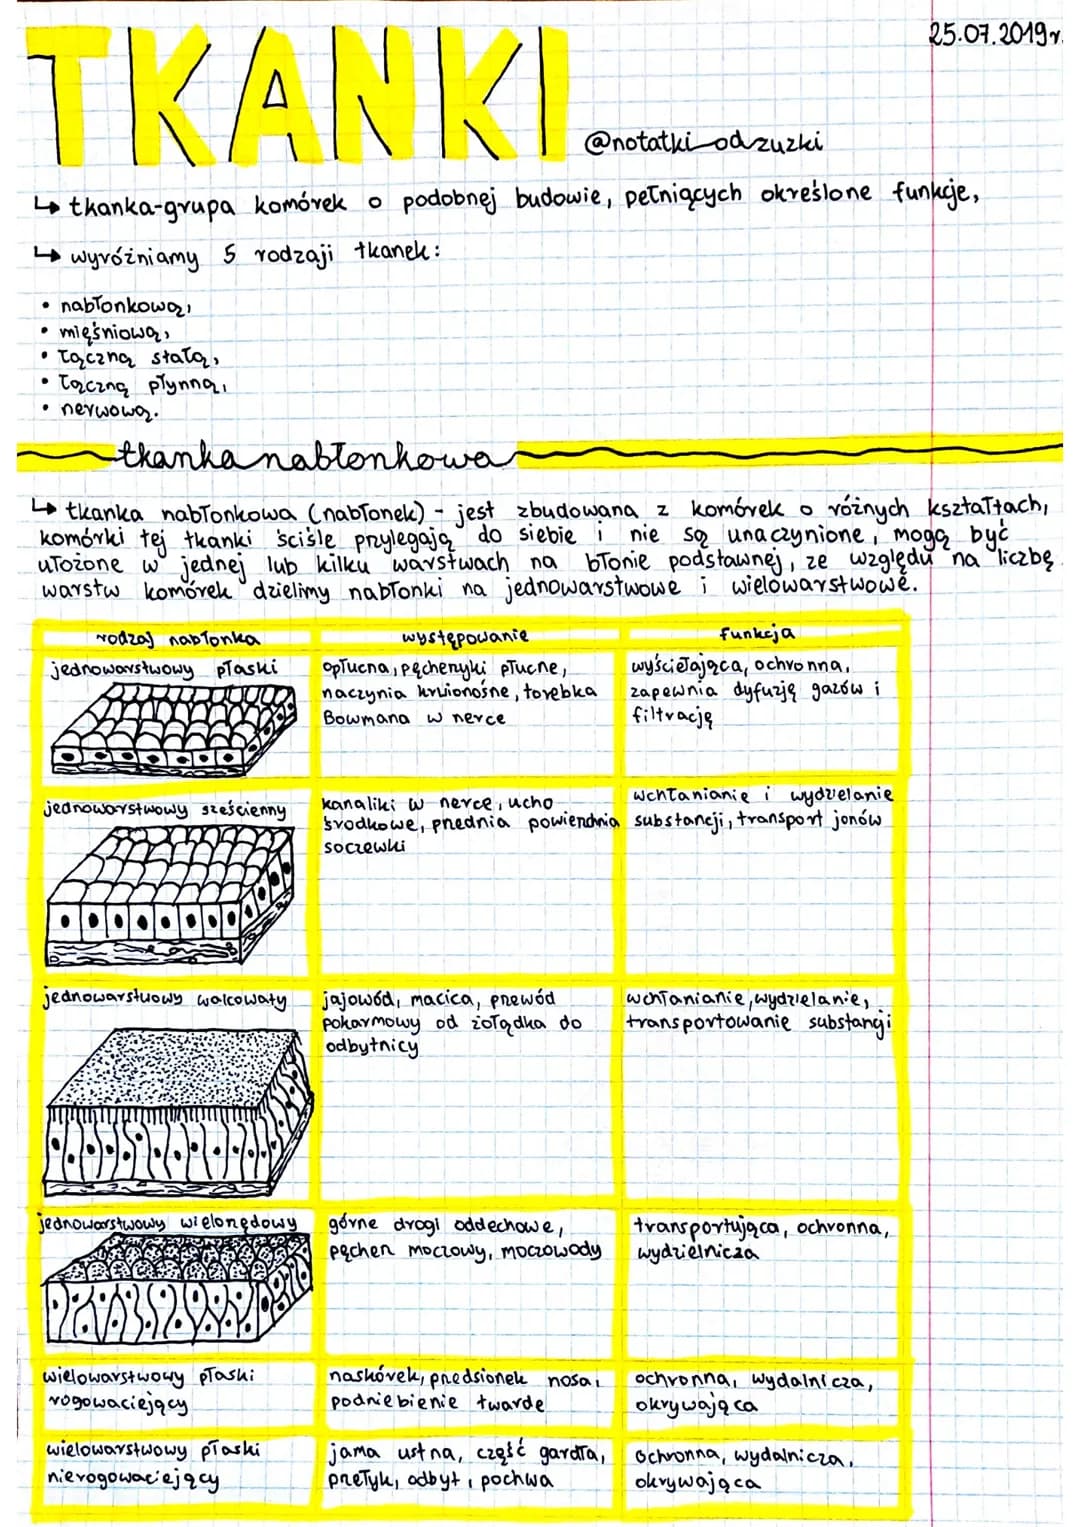 25.07.2019r.
TKANKI
@notatki_od_zuzki
↳ tkanka-grupa komórek o podobnej budowie, pełniących określone funkcje,
↳ wyróżniamy 5 rodzaji tkanek:
• nabłonkową,
• mięśniową,
• łączną stałą,
• łączną płynną,
• nerwową.
tkanka nabłonkowa
↳ tkanka nabłonkowa (nabłonek) - jest zbudowana z komórek o różnych kształtach,
komórki tej tkanki ściśle przylegają do siebie i nie są unaczynione, mogą być
ułożone w jednej lub kilku warstwach na błonie podstawnej, ze względu na liczbę
warstw komórek dzielimy nabłonki na jednowarstwowe i wielowarstwowe.
rodzaj nabłonka
występowanie
funkcja
jednowarstwowy płaski
opłucna, pęcherzyki płucne,
naczynia krwionośne, torebka
Bowmana w nerce
wyściełająca, ochronna,
zapewnia dyfuzję gazów i
filtrację
jednowarstwowy sześcienny
kanaliki w nerce, ucho
środkowe, przednia powierzchnia
soczewki
wchłanianie i wydzielanie
substancji, transport jonów
jednowarstwowy walcowaty
jajowód, macica, przewód
pokarmowy od żołądka do
odbytnicy
wchłanianie, wydzielanie,
transportowanie substancji
jednowarstwowy wielorzędowy
górne drogi oddechowe,
pęcherz moczowy, moczowody
transportująca, ochronna,
wydzielnicza
wielowarstwowy płaski
rogowaciejący
naskórek, przedsionek nosa,
podniebienie twarde
ochronna, wydalnicza,
okrywająca
wielowarstwowy płaski
nierogowaciejący
jama ustna, część gardła,
przełyk, odbyt, pochwa
ochronna, wydalnicza,
okrywająca